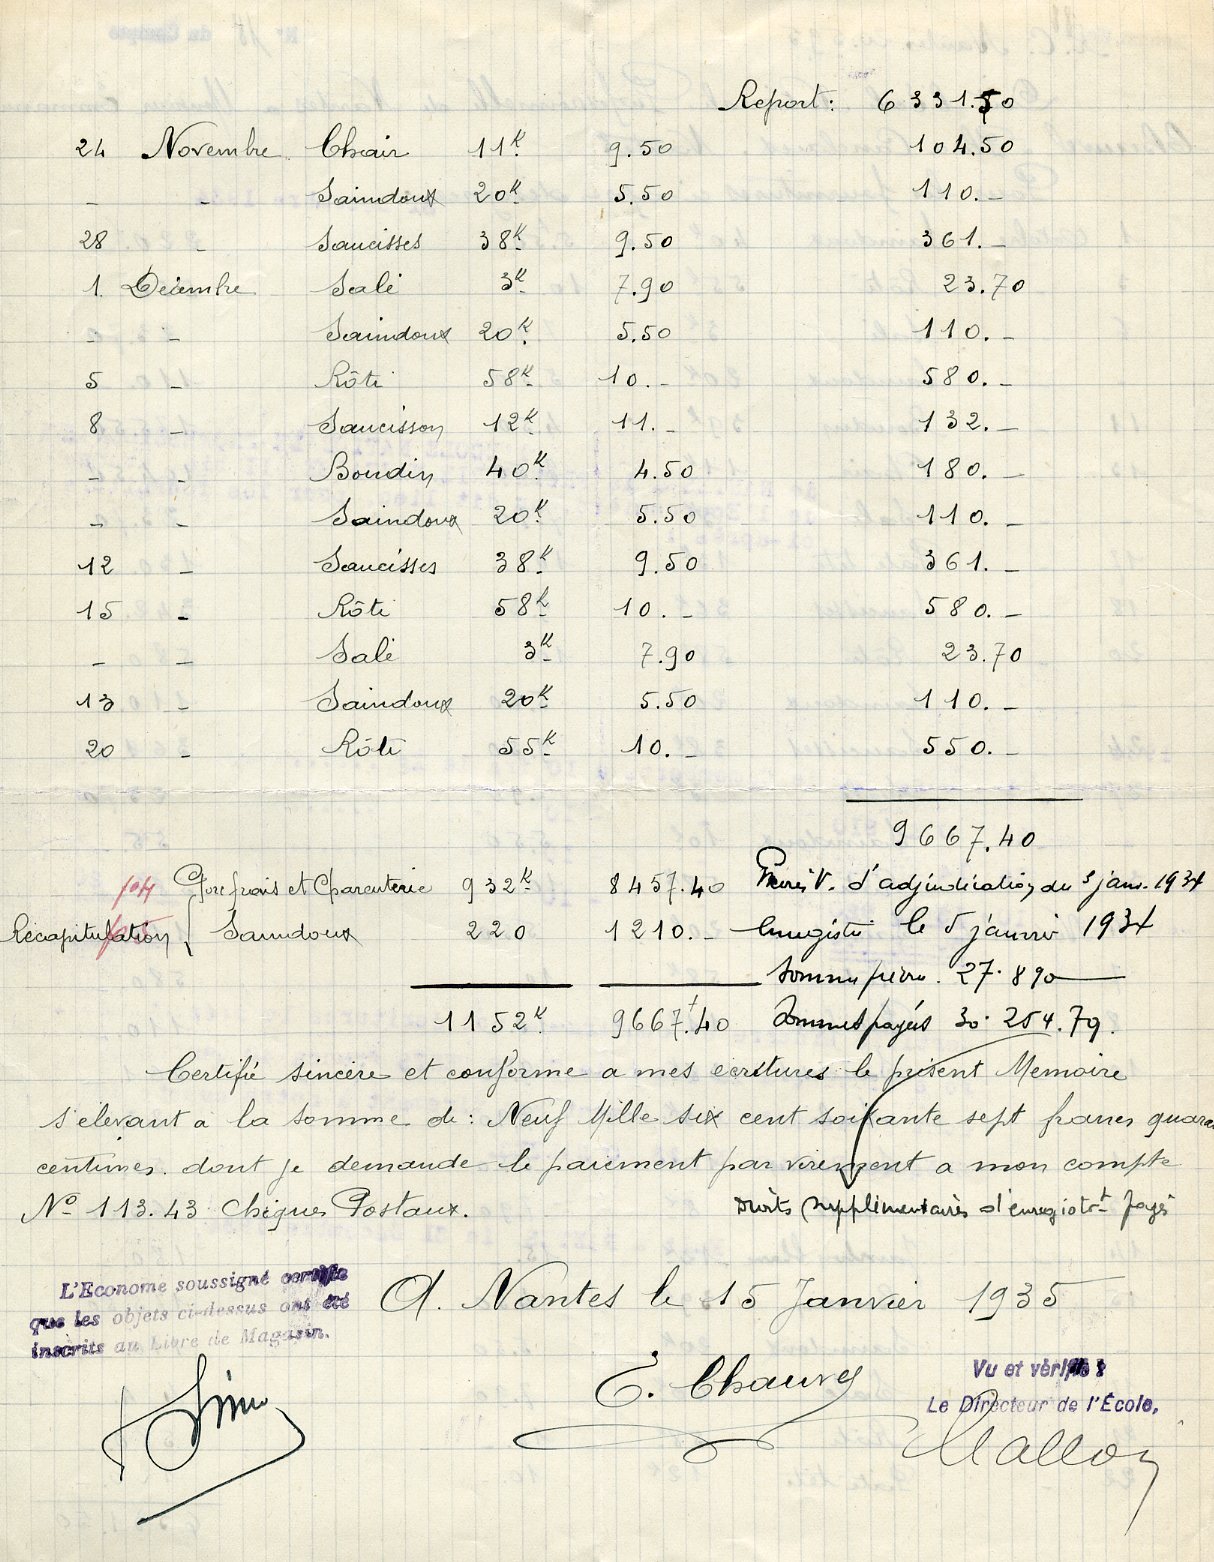 Report: 6331.50
24 Novembre Chair 11K 9.50 104.50
- - Saindoux 20K 5.50 110.-
28 - Saucisses 38K 9.50 361.-
1. Décembre Salé 3K 7.90 23.70
- - Saindoux 20K 5.50 110.-
5 - Rôti 58K 10.- 580.-
8 - Saucisson 12K 11.- 132.-
- - Boudin 40K 4.50 180.-
- - Saindoux 20K 5.50 110.-
12 - Saucisses 38K 9.50 361.-
15 - Rôti 58K 10.- 580.-
- - Salé 3K 7.90 23.70
13 - Saindoux 20K 5.50 110.-
20 - Rôti 55K 10.- 550.-
9667.40
104 Porc frais et Charcuterie 932K 8457.40 Procès V. d'adjudication du 3 janv. 1934
Récapitulation { Saindoux 220 1210.- Enregistré le 5 janvier 1934
Somme prévue. 27.890
1152K 9667.40 Sommes payées 30.254.79.
Certifié sincère et conforme a mes ecritures le présent Memoire
s'élevant a la somme de: Neuf Mille six cent soixante sept francs quara
centimes. dont je demande le paiement par virement a mon compte
No 113.43 Chèques Postaux.
Droits supplémentaires d'enregistrt payés
L'Econome soussigné certifie
que les objets ci-dessus ont été
inscrits au Livre de Magasin.
A. Nantes le 15 Janvier 1935
E. Chauvet
Vu et vérifié :
Le Directeur de l'École,